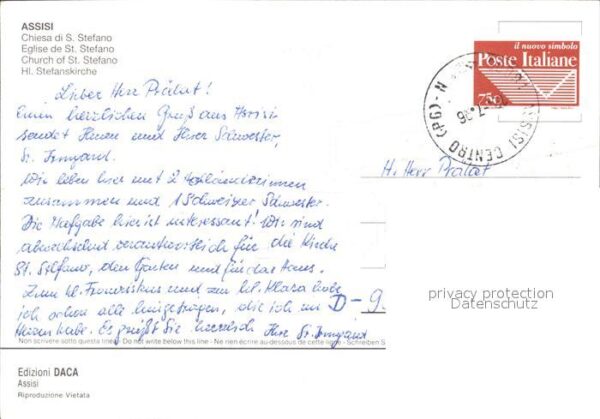 ASSISI
Chiesa di S. Stefano
Eglise de St. Stefano
Church of St. Stefano
Hl. Stefanskirche
il nuovo simbolo
Poste Italiane
750
ASSISI CENTRO (PG)
Lieber Herr Prälat!
Einen herzlichen Gruß aus Assisi
sendet Ihnen und Ihrer Schwester,
Sr. Irmgard.
Wir leben hier mit 2 Holländerinnen
zusammen und 1 Schweizer Schwester.
Die Aufgabe hier ist interessant! Wir sind
abwechselnd verantwortlich für die Kirche
St. Stefano, den Garten und für das Haus.
Zum hl. Franziskus und zur hl. Klara habe
ich schon alle hingetragen, die ich im
Herzen habe. Es grüßt Sie herzlich Ihre Sr. Irmgard
H. Herr Prälat
D-9
privacy protection
Datenschutz
Non scrivere sotto questa linea - Do not write below this line - Ne rien écrire au-dessous de cette ligne - Schreiben S
Edizioni DACA
Assisi
Riproduzione Vietata